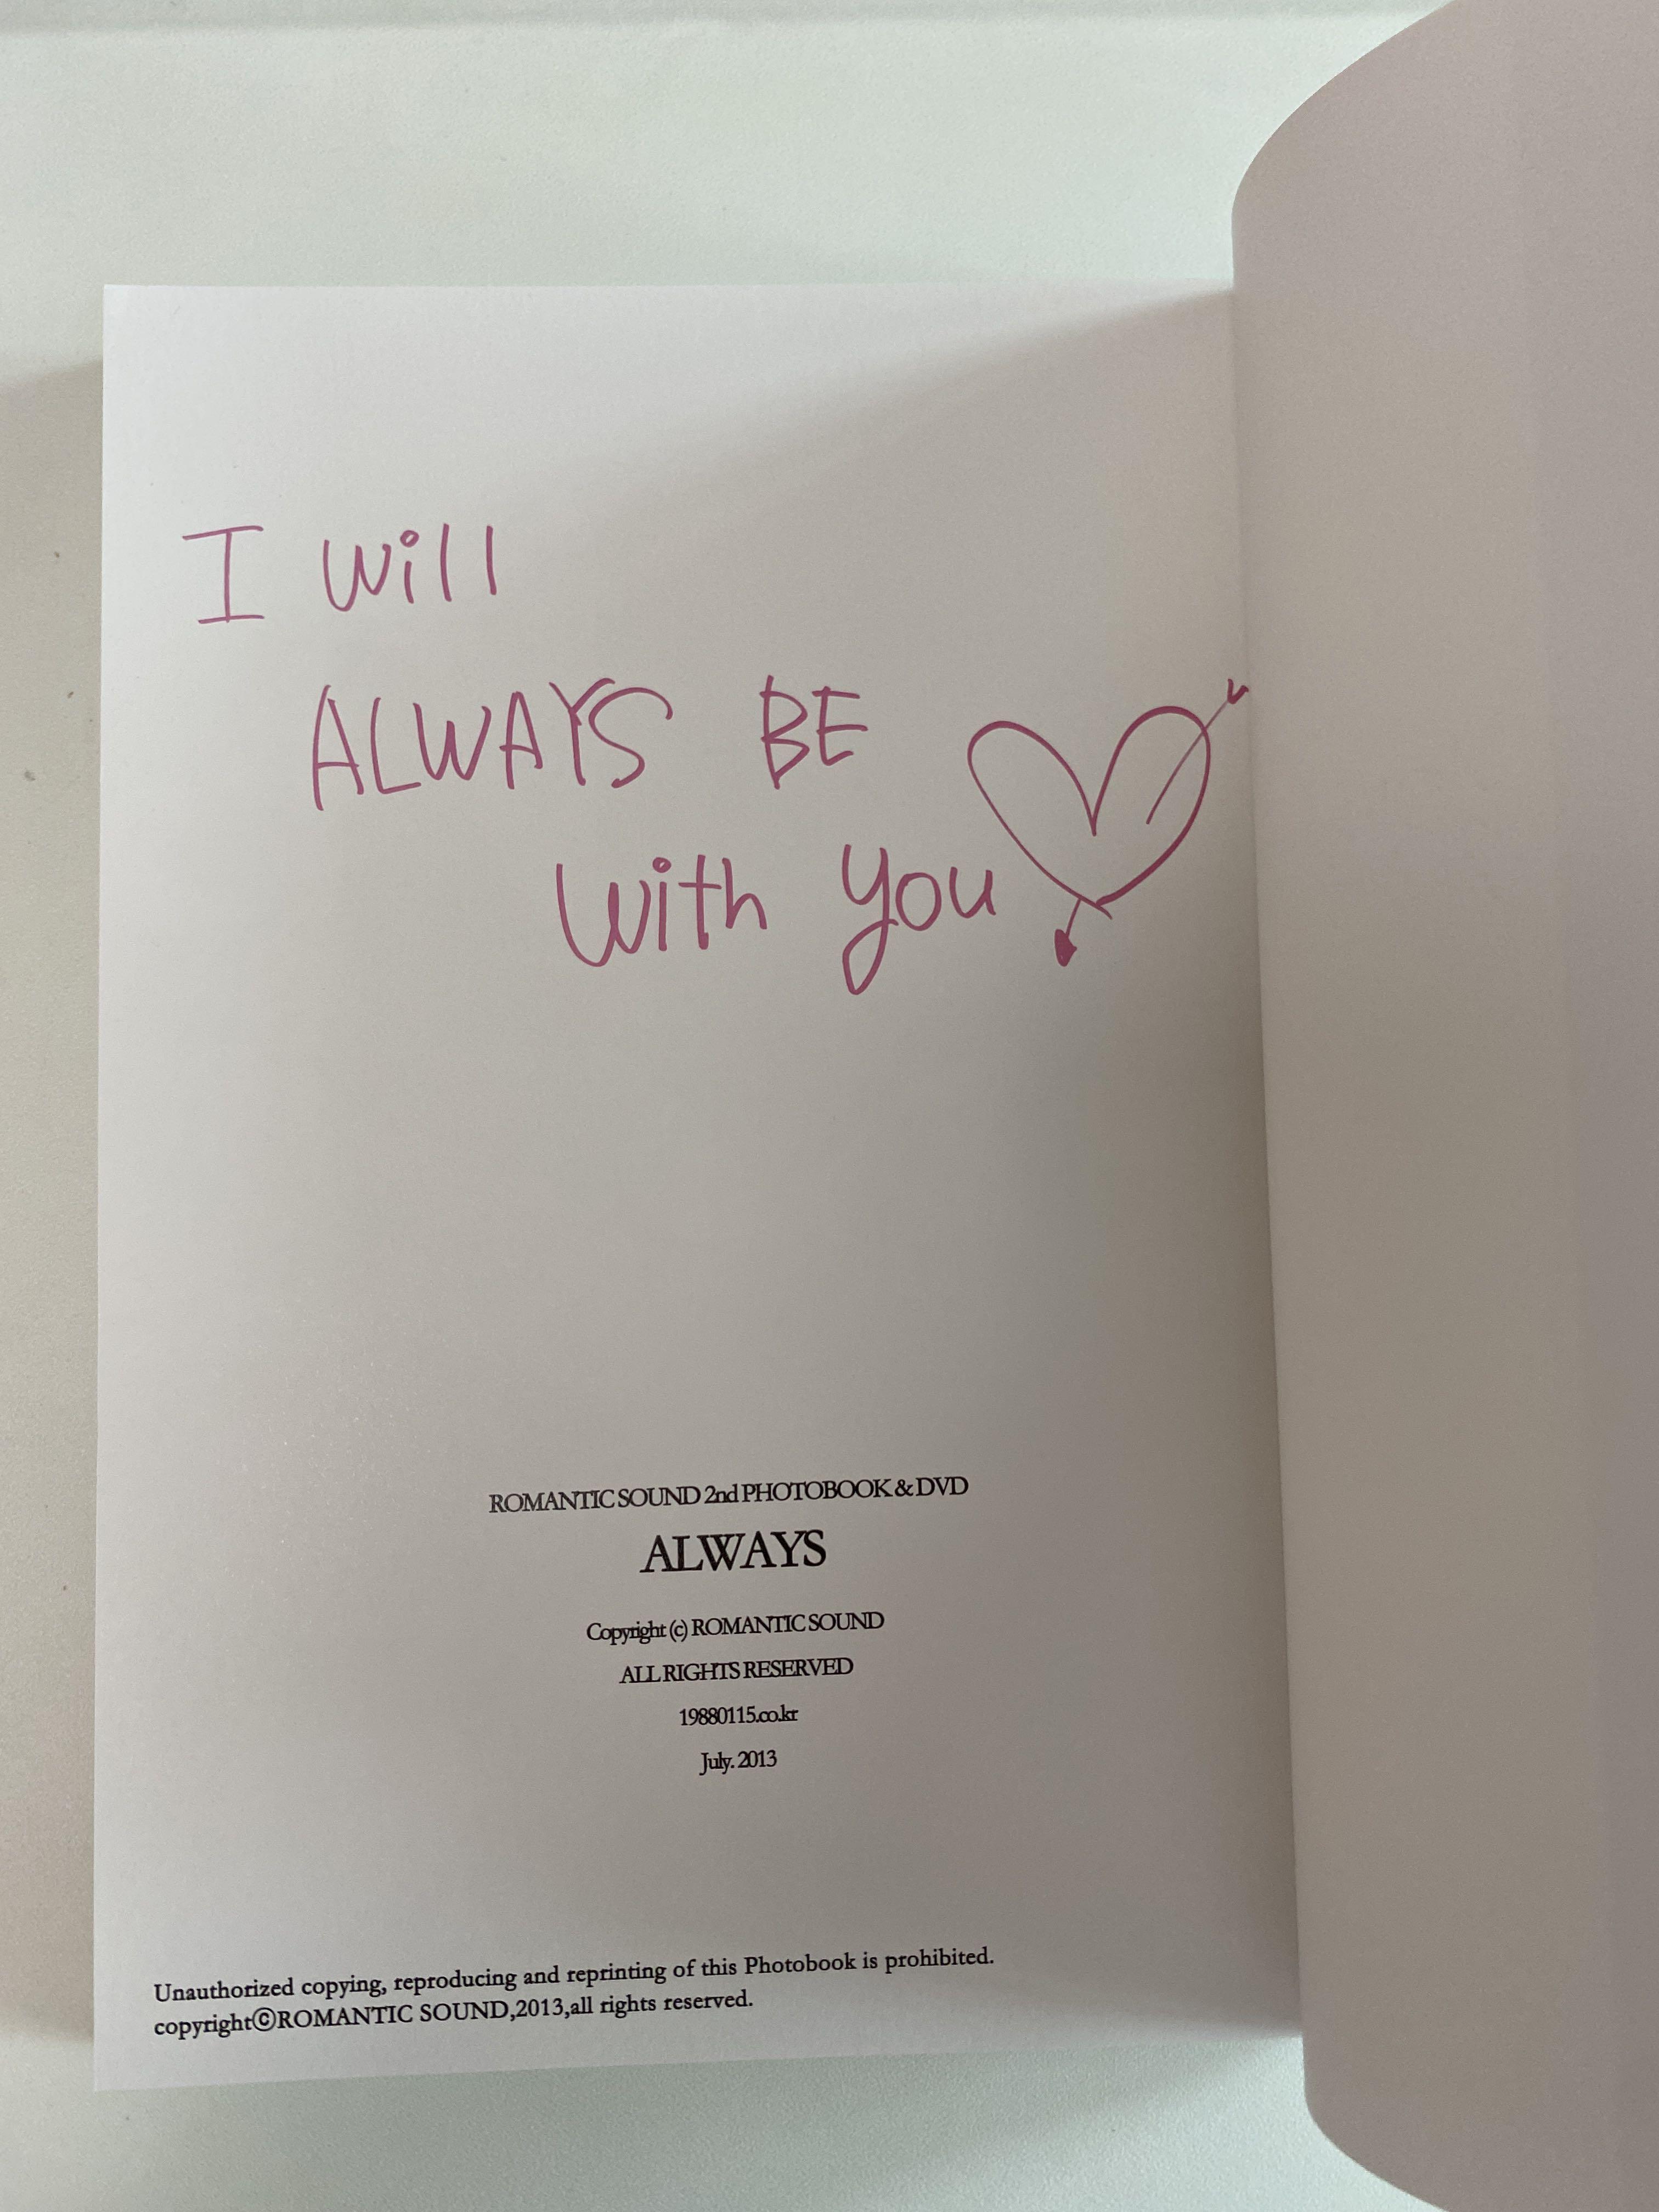 I will
ALWAYS BE
with you
ROMANTIC SOUND 2nd PHOTOBOOK & DVD
ALWAYS
Copyright (c) ROMANTIC SOUND
ALL RIGHTS RESERVED
19880115.co.kr
July. 2013
Unauthorized copying, reproducing and reprinting of this Photobook is prohibited.
copyrightⓒROMANTIC SOUND,2013,all rights reserved.